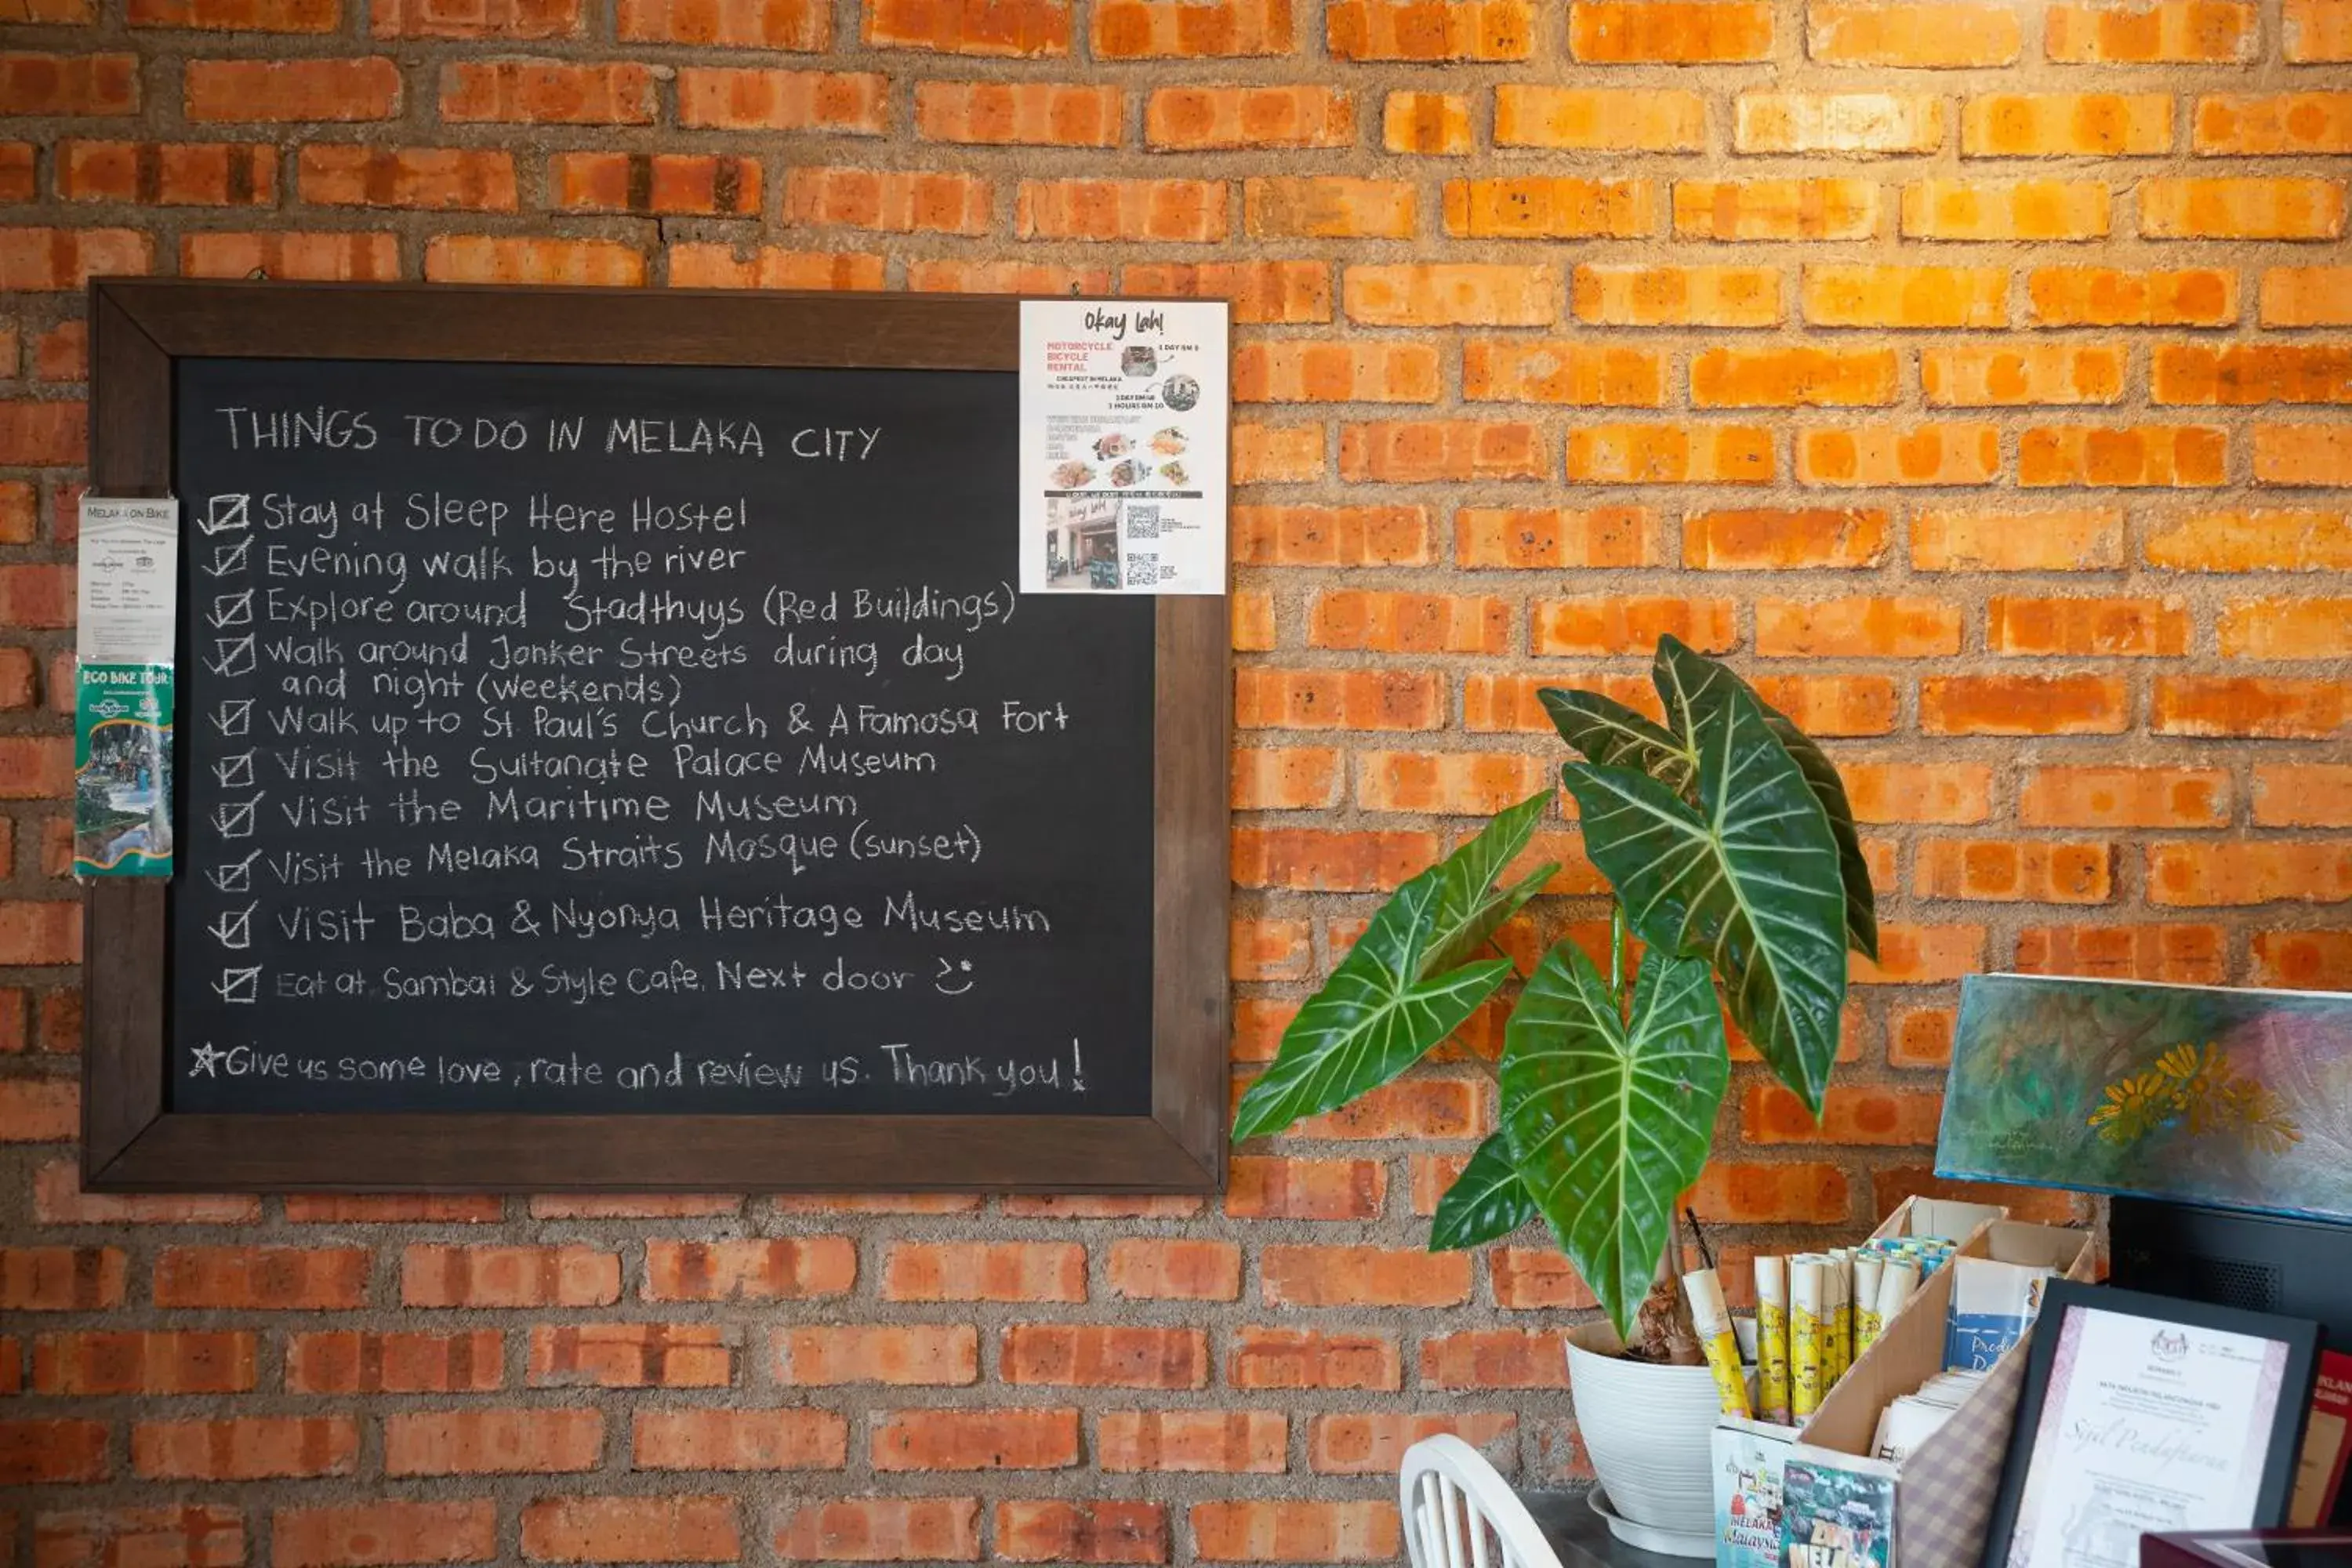 THINGS TO DO IN MELAKA CITY
Stay at Sleep Here Hostel
Evening walk by the river
Explore around Stadthuys (Red Buildings)
Walk around Jonker Streets during day
and night (weekends)
Walk up to St. Paul's Church & A Famosa Fort
Visit the Sultanate Palace Museum
Visit the Maritime Museum
Visit the Melaka Straits Mosque (sunset)
Visit Baba & Nyonya Heritage Museum
Eat at Sambal & Style Cafe. Next door
Give us some love, rate and review us. Thank you!
Okay Lah!
MOTORCYCLE
BICYCLE
RENTAL
CHEAPEST IN MELAKA
MELAKA ON BIKE
ECO BIKE TOUR
Okay Lah!
Sijil Pendaftaran
MELAKA
Malaysia